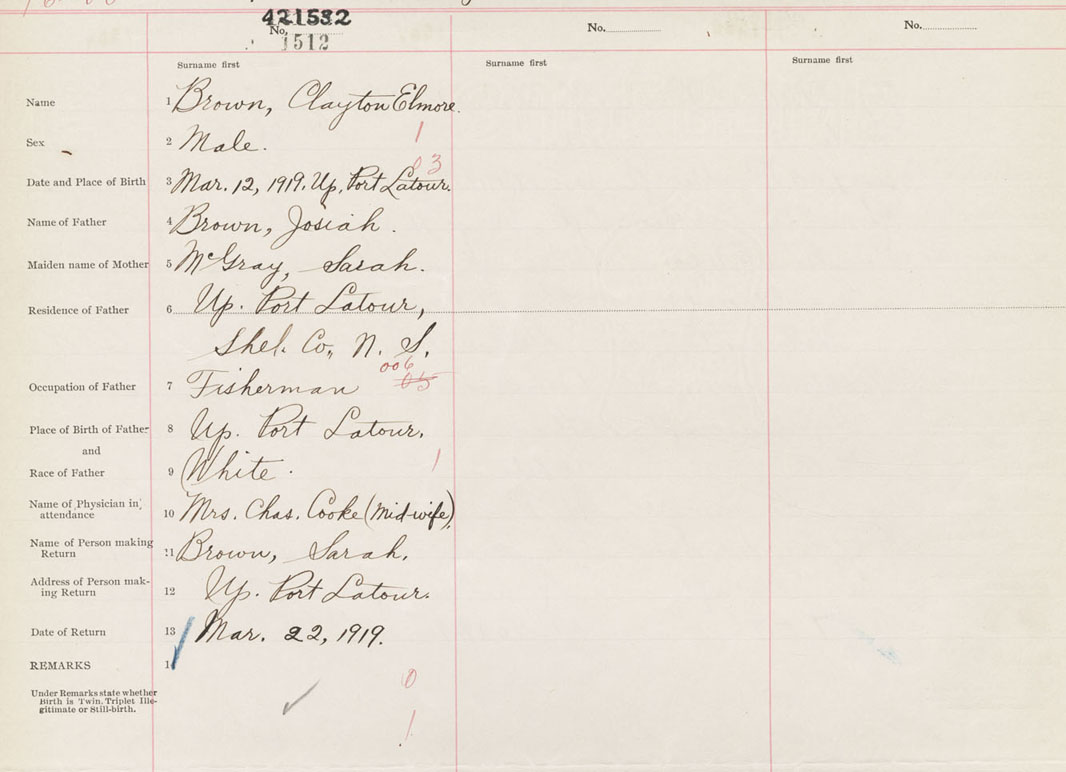 421532
No.
1512
No.
No.
Surname first
Surname first
Surname first
Name 1 Brown, Clayton Elmore.
Sex 2 Male. 1
03
Date and Place of Birth 3 Mar. 12, 1919. Up. Port Latour.
Name of Father 4 Brown, Josiah.
Maiden name of Mother 5 McGray, Sarah.
Residence of Father 6 Up. Port Latour,
Shel. Co., N. S.
006
Occupation of Father 7 Fisherman 05
Place of Birth of Father 8 Up. Port Latour.
and
Race of Father 9 White. 1
Name of Physician in
attendance 10 Mrs. Chas. Cooke (Mid-wife).
Name of Person making
Return 11 Brown, Sarah.
Address of Person mak-
ing Return 12 Up. Port Latour.
Date of Return 13 Mar. 22, 1919.
REMARKS 14
0
Under Remarks state whether
Birth is Twin, Triplet Ille-
gitimate or Still-birth.
1